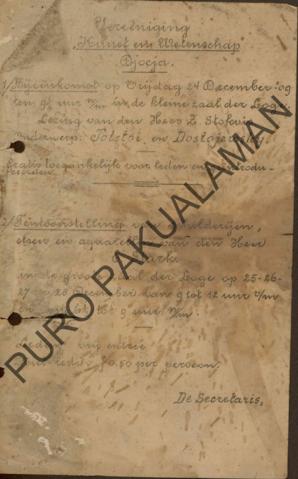 Vereeniging
"Kunst en Wetenschap"
Djocja.
1/ Bijeenkomst op Vrijdag 24 December '09
ten 9½ uur n/m in de kleine zaal der Loge.
Lezing van den Heer Z. Stokvis
onderwerp: Tolstoi en Dostojewsky
Gratis toegankelijk voor leden en introdu-
2/ Tentoonstelling van schilderijen,
etsen en aquarellen van den Heer
in de groote zaal der Loge op 25-26-
27 en 28 December van 9 tot 12 uur v/m
9 uur n/m.
vrij entree
0.50 per persoon.
De Secretaris,
PURO PAKUALAMAN